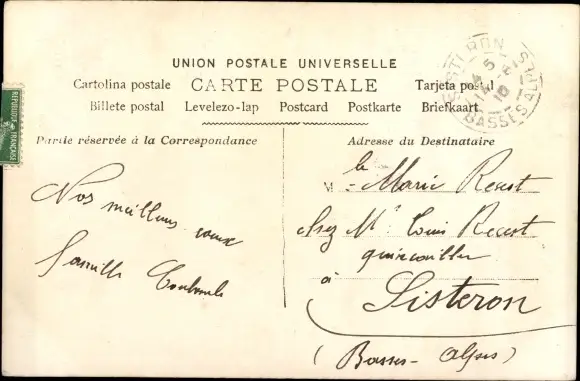 UNION POSTALE UNIVERSELLE
Cartolina postale CARTE POSTALE Tarjeta postal
Billete postal Levelezo-lap Postcard Postkarte Briefkaart
Partie réservée à la Correspondance
Adresse du Destinataire
SISTERON
5
10
BASSES ALPES
REPUBLIQUE FRANÇAISE
Nos meilleurs vœux
Famille
M lle Marie
chez Mr Louis
quincaillier
à Sisteron
(Basses-Alpes)